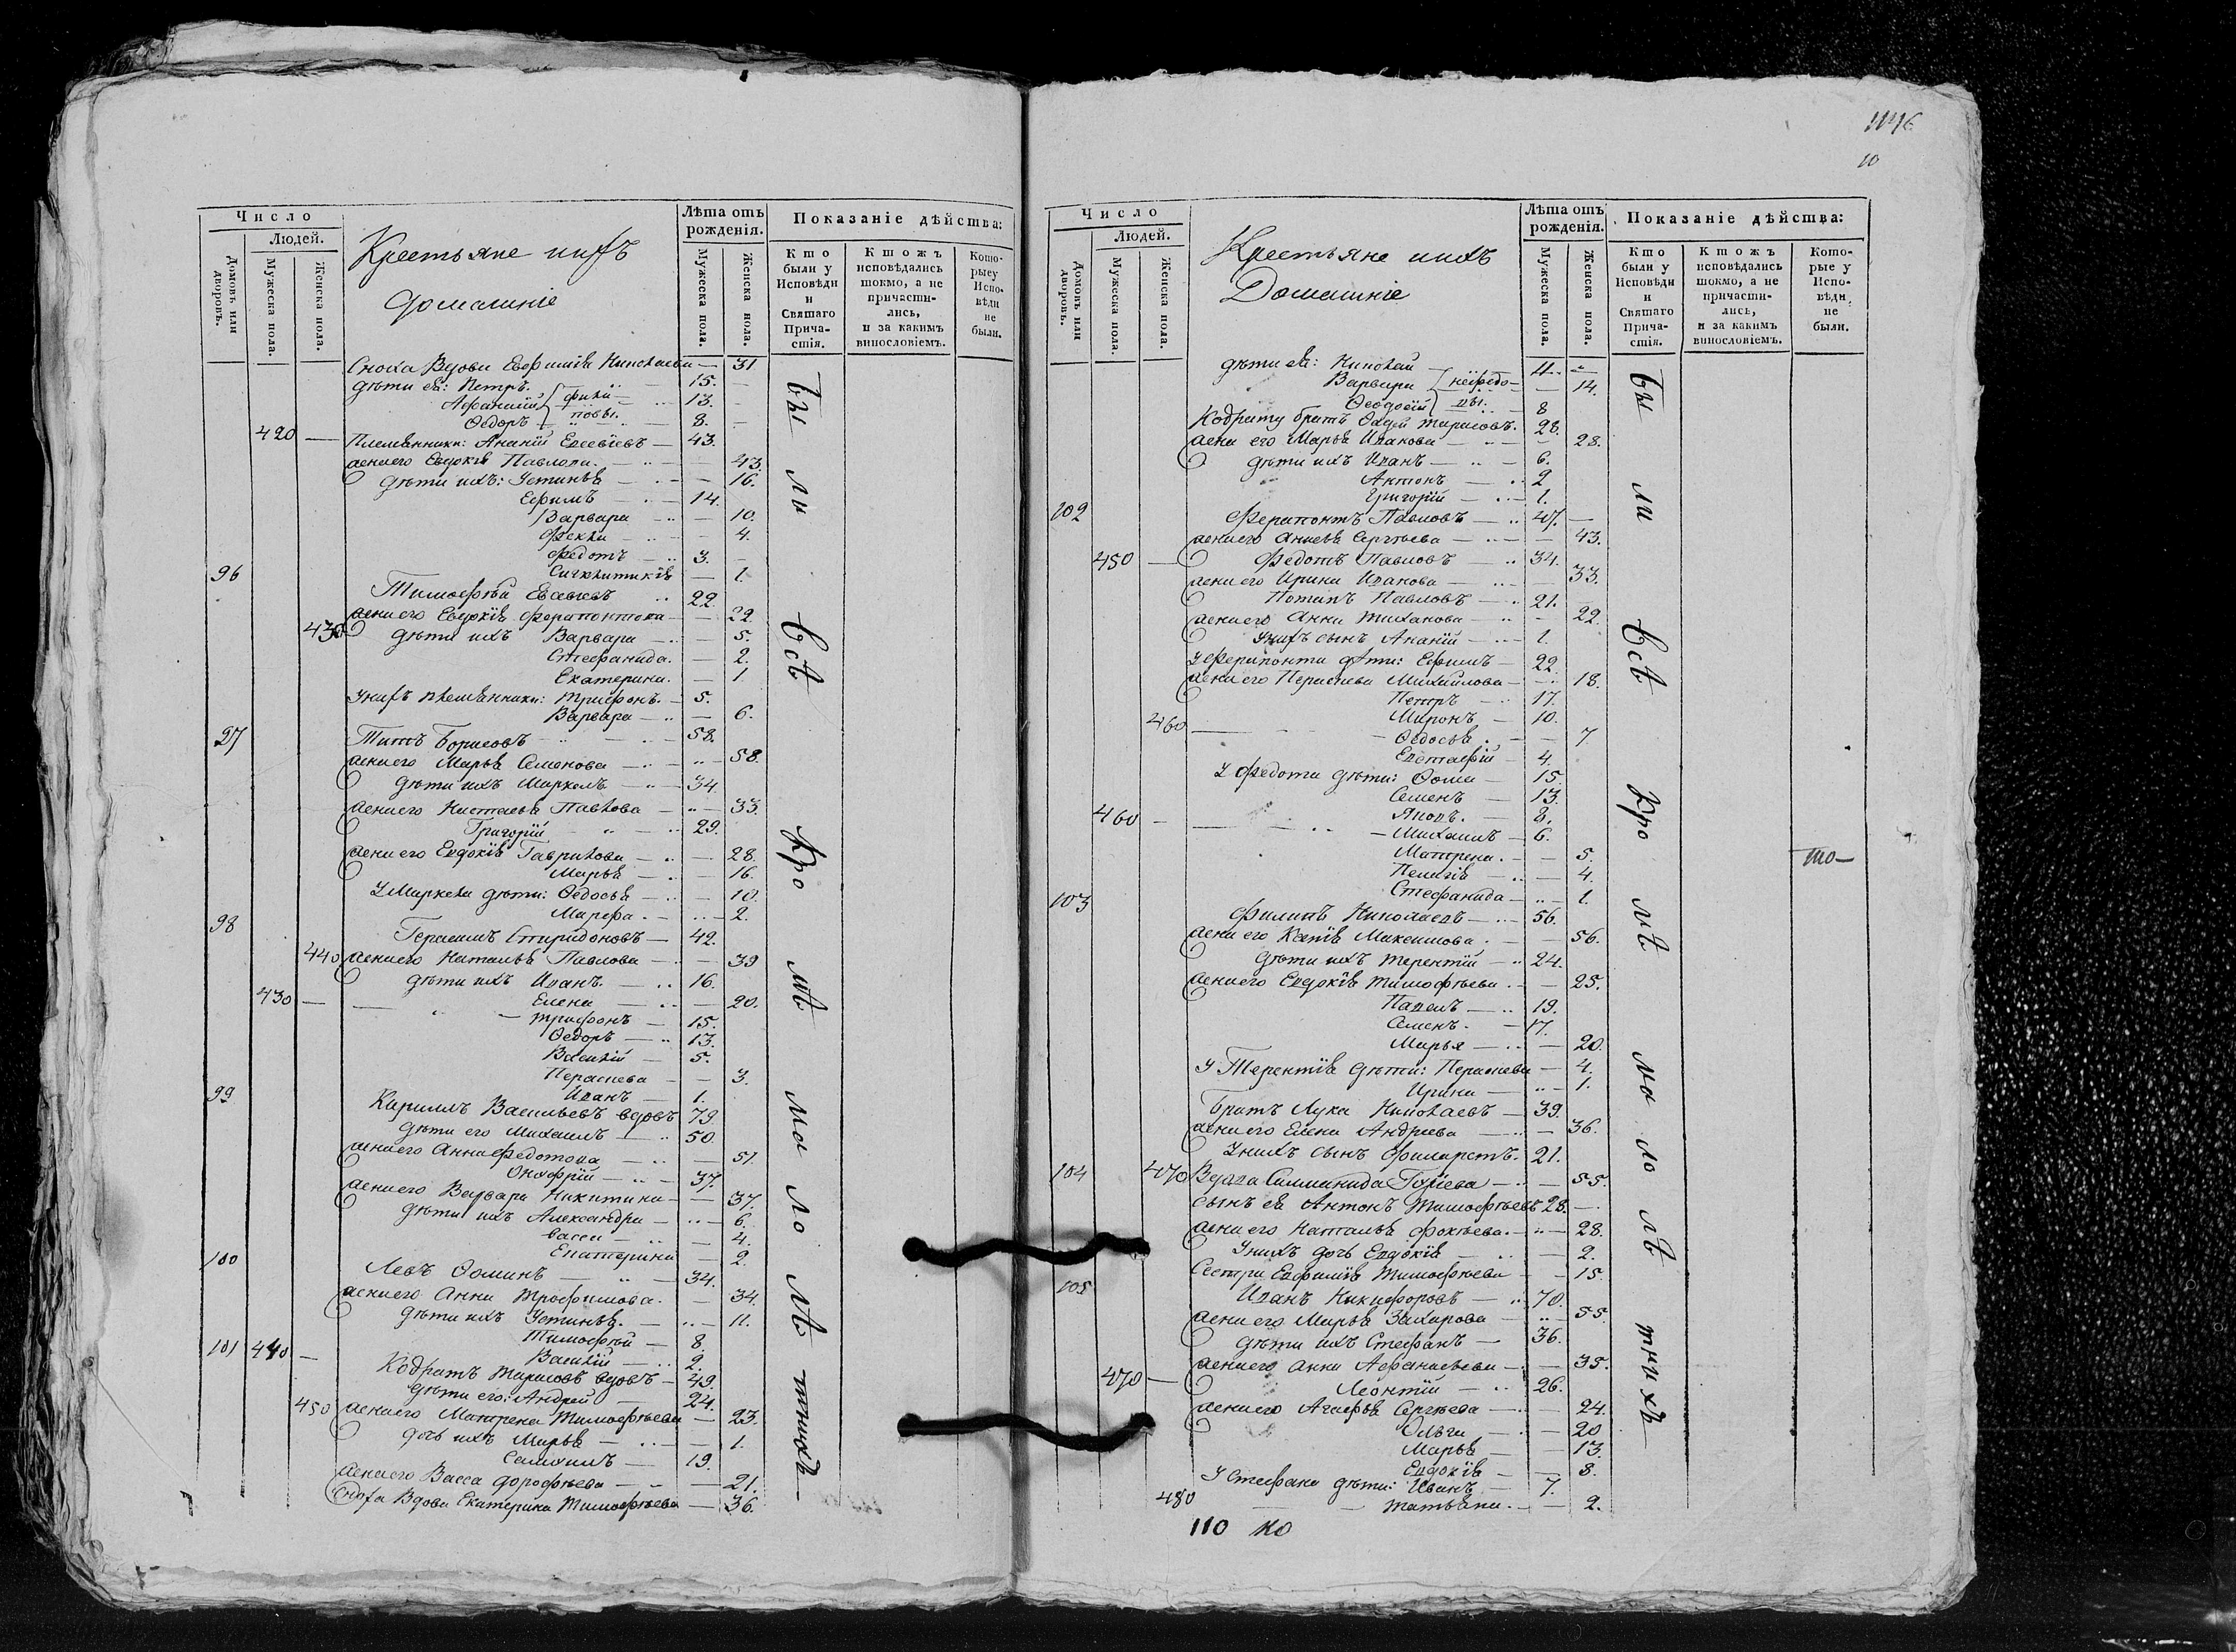 Число
Людей.
Домовъ или дворовъ.
Мужеска пола.
Женска пола.
Крестьяне ихъ
домашніе
Лѣта отъ рожденія.
Мужеска пола.
Женска пола.
Показаніе дѣйства:
Кто были у Исповѣди и Святаго Причастія.
Ктожъ исповѣдались токмо, а не причастились, и за какимъ винословіемъ.
Которые у Исповѣди не были.
Сноха Вдова Евфимія Николаева — 31
дѣти ея: Петръ. 15.
Афанасій 13.
Ѳедоръ 8.
420 — Племянники: Ананій Евсевіевъ — 43.
жена его Евдокія Павлова. — 43.
дѣти ихъ: Устинья — 16.
Ефимъ — 14.
Варвара — 10.
Фекла — 4.
Федотъ — 3.
Сигклитикія — 1.
96
Тимофѣй Евсевіевъ 22.
жена его Евдокія Ферапонтова — 22
430 дѣти ихъ Варвара — 5.
Стефанида. — 2.
Екатерина. — 1
У нихъ племянники: Трифонъ. — 5.
Варвара — 6.
97
Титъ Борисовъ — 58.
жена его Марья Семенова — 58.
дѣти ихъ Маркелъ — 34.
жена его Настасья Павлова — 33.
Григорій — 29.
жена его Евдокія Гаврилова — 28.
Марья — 16.
У Маркела дѣти: Ѳедосья — 10.
Марфа. — 2.
98
Герасимъ Спиридоновъ — 42.
440 жена его Наталья Павлова — 39
дѣти ихъ Иванъ — 16.
430 — Елена — 20.
Трифонъ — 15.
Ѳедоръ — 13.
Василій — 5.
Перасковья — 3.
99
Иванъ — 1.
Кириллъ Васильевъ вдовъ 79.
дѣти его Михаилъ 50.
жена его Анна Федотова — 51.
Онуфрій — 37.
жена его Варвара Никитина — 37.
дѣти ихъ Александра — 6.
Васса — 4.
Екатерина 2.
100
Левъ Ѳоминъ — 34.
жена его Анна Трофимова. — 34.
дѣти ихъ Устинья. — 11.
Тимофѣй — 8.
101 440 —
Василій — 2.
Кодратъ Тарасовъ вдовъ — 49.
дѣти его: Андрей 24.
450 жена его Матрена Тимофѣева — 23.
дочь ихъ Марья — 1.
Самоилъ — 19.
жена его Васса Дорофѣева — 21.
Сноха Вдова Екатерина Тимофѣева — 36.
Бы ли всѣ кро мѣ ма ло лѣ тнихъ
10
Число
Людей.
Домовъ или дворовъ.
Мужеска пола.
Женска пола.
Крестьяне ихъ
Домашніе
Лѣта отъ рожденія.
Мужеска пола.
Женска пола.
Показаніе дѣйства:
Кто были у Исповѣди и Святаго Причастія.
Ктожъ исповѣдались токмо, а не причастились, и за какимъ винословіемъ.
Которые у Исповѣди не были.
дѣти ея: Николай — 11.
Варвара — 14.
Ѳеодосій 8
Кодрату братъ Фадей Тарасовъ. 28.
жена его Марья Иванова — 28.
дѣти ихъ Иванъ — 6.
Антонъ — 2
Григорій — 1.
102
Ферапонтъ Павловъ — 47.
жена его Анисья Сергѣева — 43.
450 — Федотъ Павловъ 34.
жена его Ирина Иванова — 33.
Потапъ Павловъ — 21.
жена его Анна — 22.
У нихъ сынъ Ананій — 1.
У Ферапонта дѣти: Ефимъ — 22
жена его Перасковья Михайлова — 18.
Петръ — 17.
Миронъ — 10.
460 — Ѳедосья — 7
Евстафій — 4.
У Федота дѣти: Ѳома — 15.
Семенъ — 13.
460 — Яковъ. — 8.
Михаилъ — 6.
Матрена. — 5.
Пелагія — 4.
Стефанида — 1.
103
Филипъ Николаевъ — 56.
жена его Ксенія Максимова. — 56.
дѣти ихъ Терентій — 24.
жена его Евдокія Тимофѣева. — 25.
Павелъ — 19.
Семенъ. — 17.
Марья — 20.
У Терентія дѣти: Перасковья — 4.
Ирина — 1.
Братъ Лука Николаевъ — 39.
жена его Елена Андреева — 36.
У нихъ сынъ Филаретъ. 21.
104 470 Вдова Гурьева — 55.
сынъ ея Антонъ Тимофѣевъ 28. —
жена его Наталья Фоктѣева. — 28.
У нихъ дочь Евдокія — 2.
Сестра Евфимія Тимофѣева — 15.
105
Иванъ Никифоровъ — 70.
жена его Марья Захарова — 55.
дѣти ихъ Стефанъ — 36.
жена его Анна Афанасьева — 35.
470 — Леонтій — 26.
жена его Агафья Сергѣева — 24.
Ольга — 20
Марья — 13.
Евдокія — 8.
У Стефана дѣти: Иванъ — 7.
480 — Татьяна. — 2.
Бы ли всѣ кро мѣ ма ло лѣ тнихъ
то—
110 110